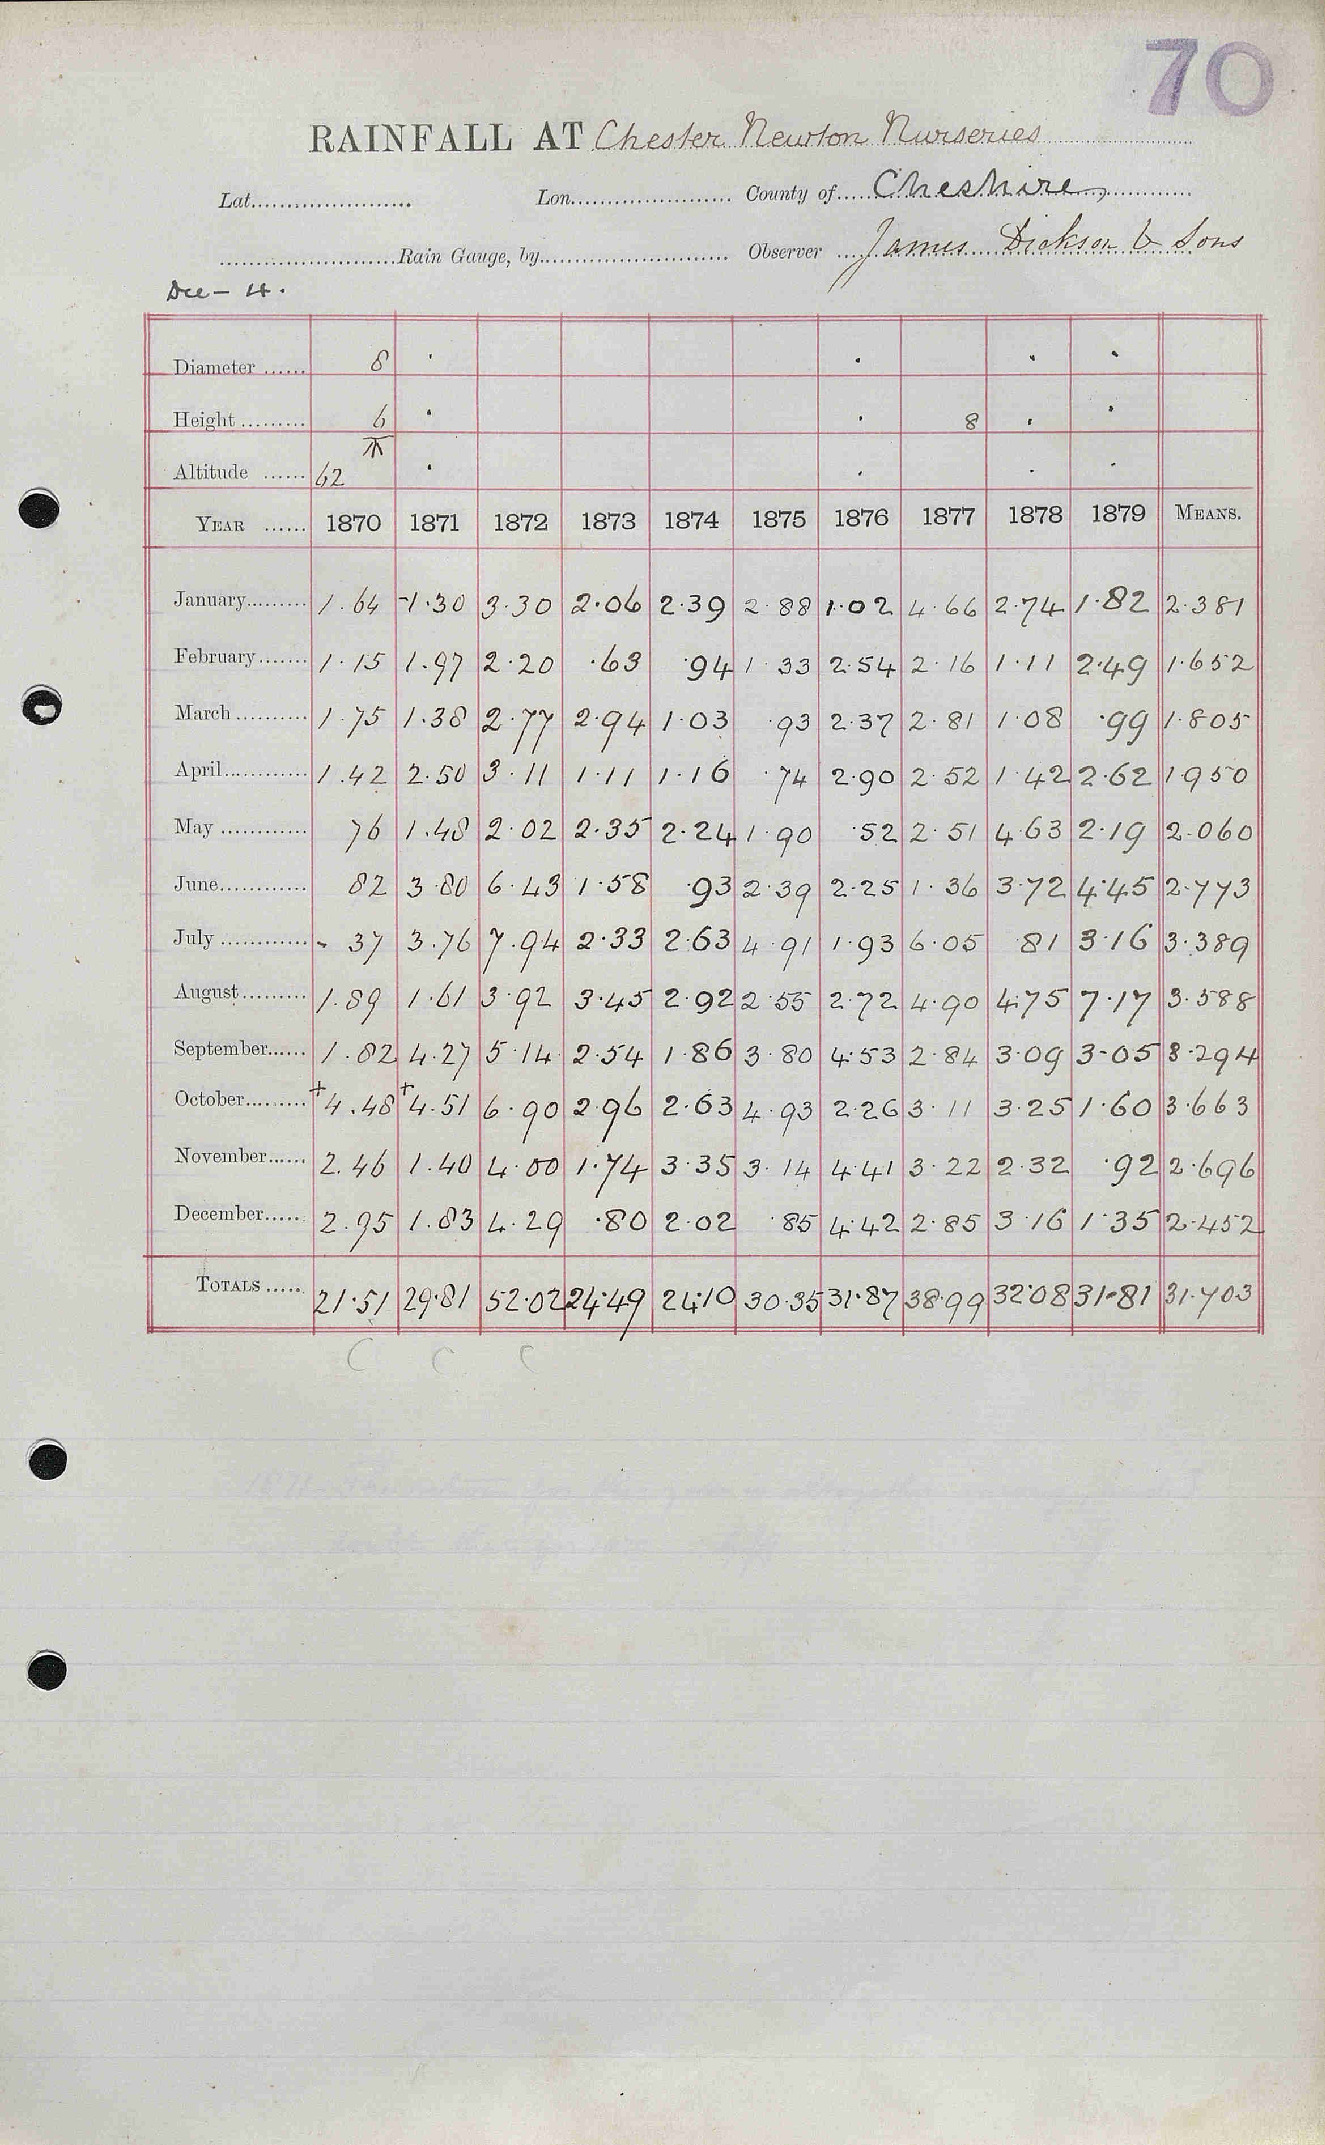 70
RAINFALL AT Chester Newton Nurseries
Lat. Lon. County of Cheshire,
Rain Gauge, by Observer James Dickson & Sons
Dec - 4.
Diameter 8
Height 6 8
Altitude 62
YEAR 1870 1871 1872 1873 1874 1875 1876 1877 1878 1879 MEANS.
January 1.64 1.30 3.30 2.06 2.39 2.88 1.02 4.66 2.74 1.82 2.381
February 1.15 1.97 2.20 .63 .94 1.33 2.54 2.16 1.11 2.49 1.652
March 1.75 1.38 2.77 2.94 1.03 .93 2.37 2.81 1.08 .99 1.805
April 1.42 2.50 3.11 1.11 1.16 .74 2.90 2.52 1.42 2.62 1.950
May 76 1.48 2.02 2.35 2.24 1.90 .52 2.51 4.63 2.19 2.060
June 82 3.80 6.43 1.58 .93 2.39 2.25 1.36 3.72 4.45 2.773
July - 37 3.76 7.94 2.33 2.63 4.91 1.93 6.05 .81 3.16 3.389
August 1.89 1.61 3.92 3.45 2.92 2.55 2.72 4.90 4.75 7.17 3.588
September 1.82 4.27 5.14 2.54 1.86 3.80 4.53 2.84 3.09 3.05 3.294
October +4.48 +4.51 6.90 2.96 2.63 4.93 2.26 3.11 3.25 1.60 3.663
November 2.46 1.40 4.00 1.74 3.35 3.14 4.41 3.22 2.32 .92 2.696
December 2.95 1.83 4.29 .80 2.02 .85 4.42 2.85 3.16 1.35 2.452
TOTALS 21.51 29.81 52.02 24.49 24.10 30.35 31.87 38.99 32.08 31.81 31.703
C C C